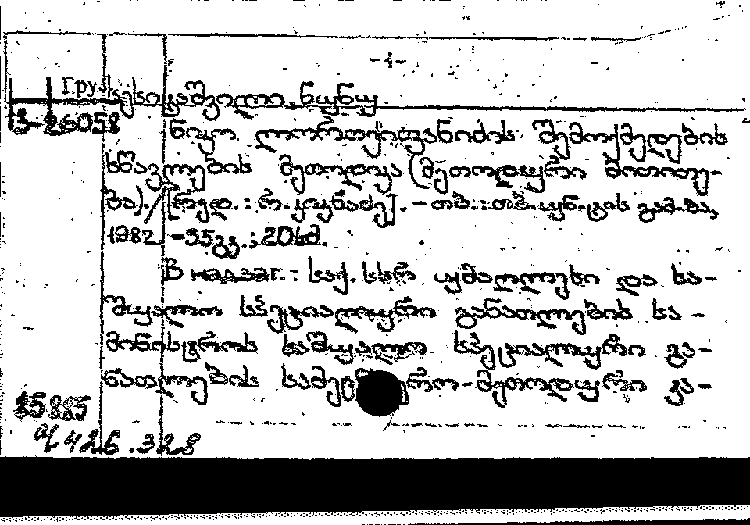 -1-
Груз
ესიაშვილი ნუნუ
3-26058
ნიკო ლორთქიფანიძის შემოქმედების
სწავლების მეთოდიკა (მეთოდური მითითე-
ბა). / [რედ.: რ. კუნაძე]. - თბ.: თბ. უნ-ტის გამ-ბა,
1982 -35გვ.; 20სმ.
В надзаг.: საქ. სსრ უმაღლესი და სა-
შუალო სპეციალური განათლების სა-
მინისტროს საშუალო სპეციალური გა-
ნათლების სამეცნ რო-მეთოდური კა-
85885
426.328